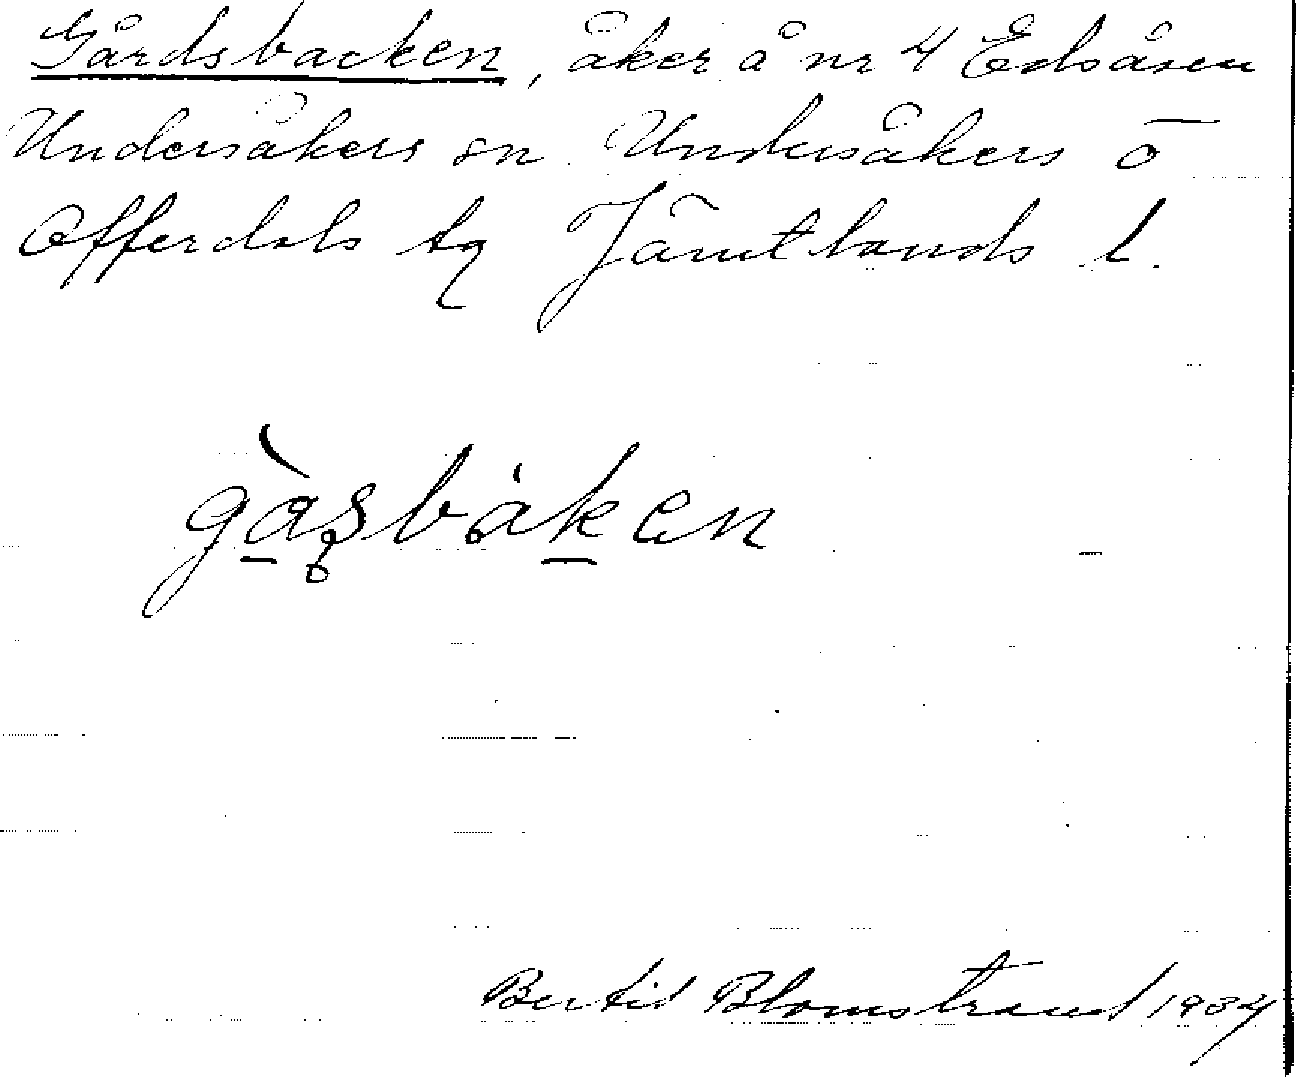 Gårdsbacken, åker å nr 4 Edsåsen
Undersåkers sn. Undersåkers o
Offerdals tg Jämtlands l.
gàsbàken
Bertil Blomstrand 1934